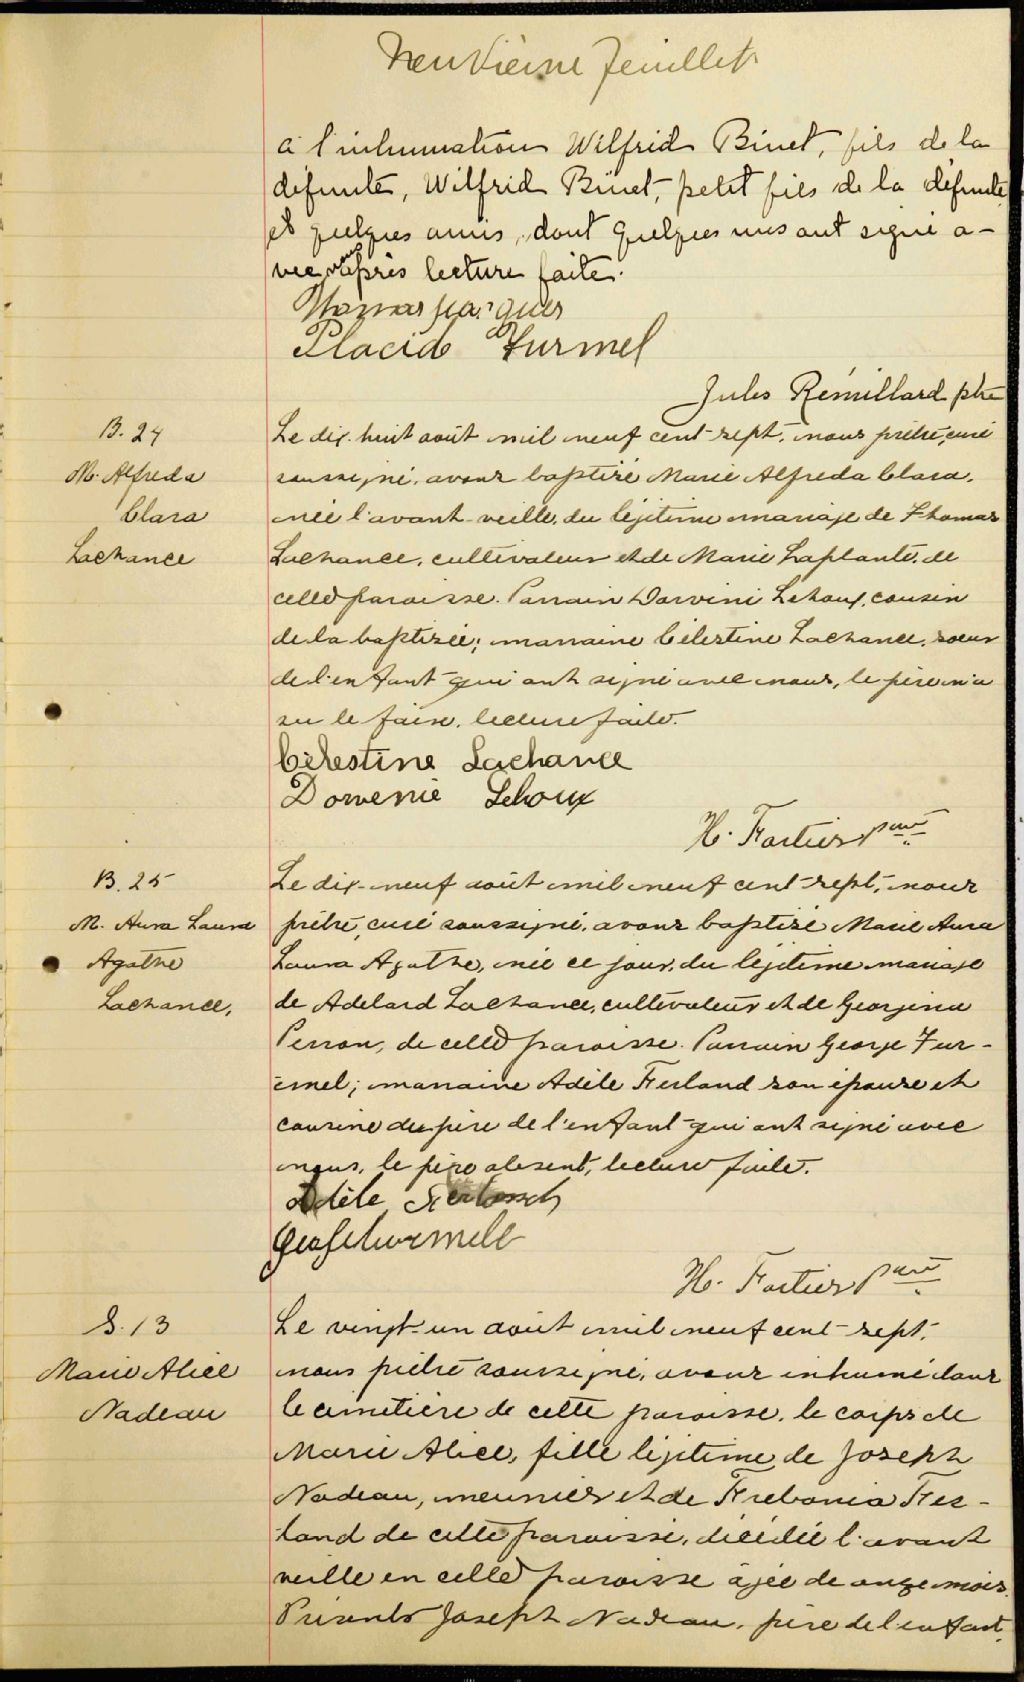 Neuvième feuillet
à l'inhumation Wilfrid Binet, fils de la
défunte, Wilfrid Binet, petit fils de la défunte
et quelques amis, dont quelques uns ont signé a-
vec nous après lecture faite.
Thomas Jacques
Placide Turmel
Jules Rémillard ptre
B. 24
M. Alfreda
Clara
Lachance
Le dix-huit août mil neuf cent-sept, nous prêtre, curé
soussigné, avons baptisé Marie Alfreda Clara,
née l'avant-veille, du légitime mariage de Thomas
Lachance, cultivateur et de Marie Laplante, de
cette paroisse. Parrain Dorvini Lehoux, cousin
de la baptisée; marraine Célestine Lachance, soeur
de l'enfant qui ont signé avec nous, le père n'a
su le faire, lecture faite.
Célestine Lachance
Dorvenie Lehoux
H. Fortier
B. 25
M. Aura Laura
Agathe
Lachance,
Le dix-neuf août mil neuf cent-sept, nous
prêtre, curé soussigné, avons baptisé Marie Aura
Laura Agathe, née ce jour, du légitime mariage
de Adelard Lachance, cultivateur et de Georgina
Perron, de cette paroisse. Parrain George Tur-
mel; marraine Adèle Ferland son épouse et
cousine du père de l'enfant qui ont signé avec
nous, le père absent, lecture faite.
Adèle Ferland
H. Fortier
S. 13
Marie Alice
Nadeau
Le vingt-un août mil neuf cent-sept,
nous prêtre soussigné, avons inhumé dans
le cimetière de cette paroisse, le corps de
Marie Alice, fille légitime de Joseph
Nadeau, meunier et de Frebonia Fer-
land de cette paroisse, décédée l'avant
veille en cette paroisse âgée de onze mois.
Présents Joseph Nadeau, père de l'enfant,